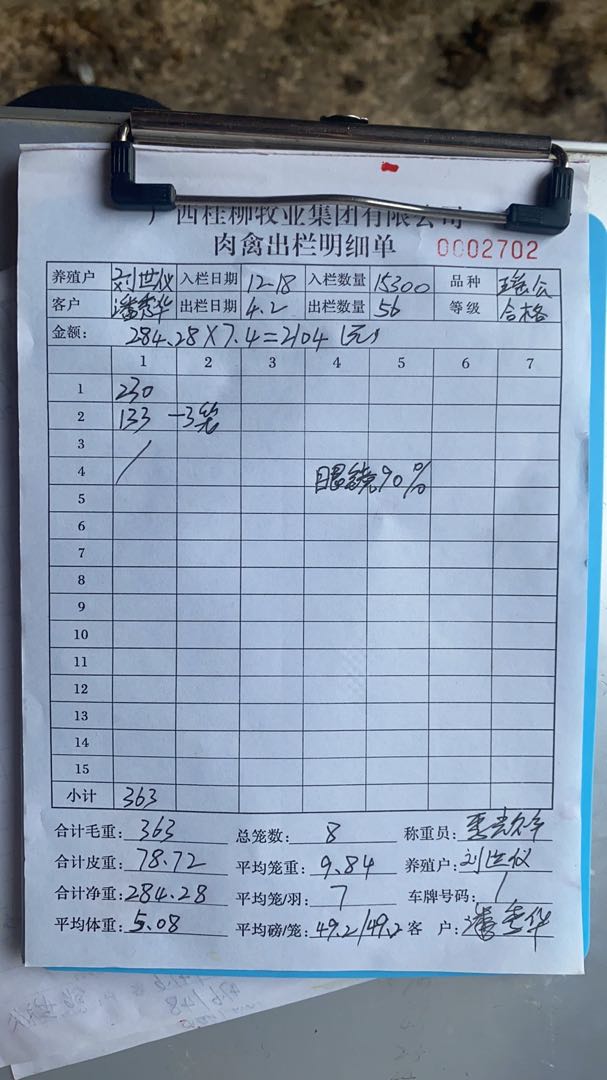 广西桂柳牧业集团有限公司
肉禽出栏明细单 0002702
养殖户 刘世仪 入栏日期 12-18 入栏数量 15300 品种
客户 潘秀华 出栏日期 4.2 出栏数量 56 等级 合格
金额: 284.28×7.4=2104(元)
1 2 3 4 5 6 7
1 230
2 133 -3笼
3
4 / 眼镜90%
5
6
7
8
9
10
11
12
13
14
15
小计 363
合计毛重: 363 总笼数: 8 称重员:
合计皮重: 78.72 平均笼重: 9.84 养殖户: 刘世仪
合计净重: 284.28 平均笼/羽: 7 车牌号码: /
平均体重: 5.08 平均磅/笼: 49.2/49.2 客 户: 潘秀华